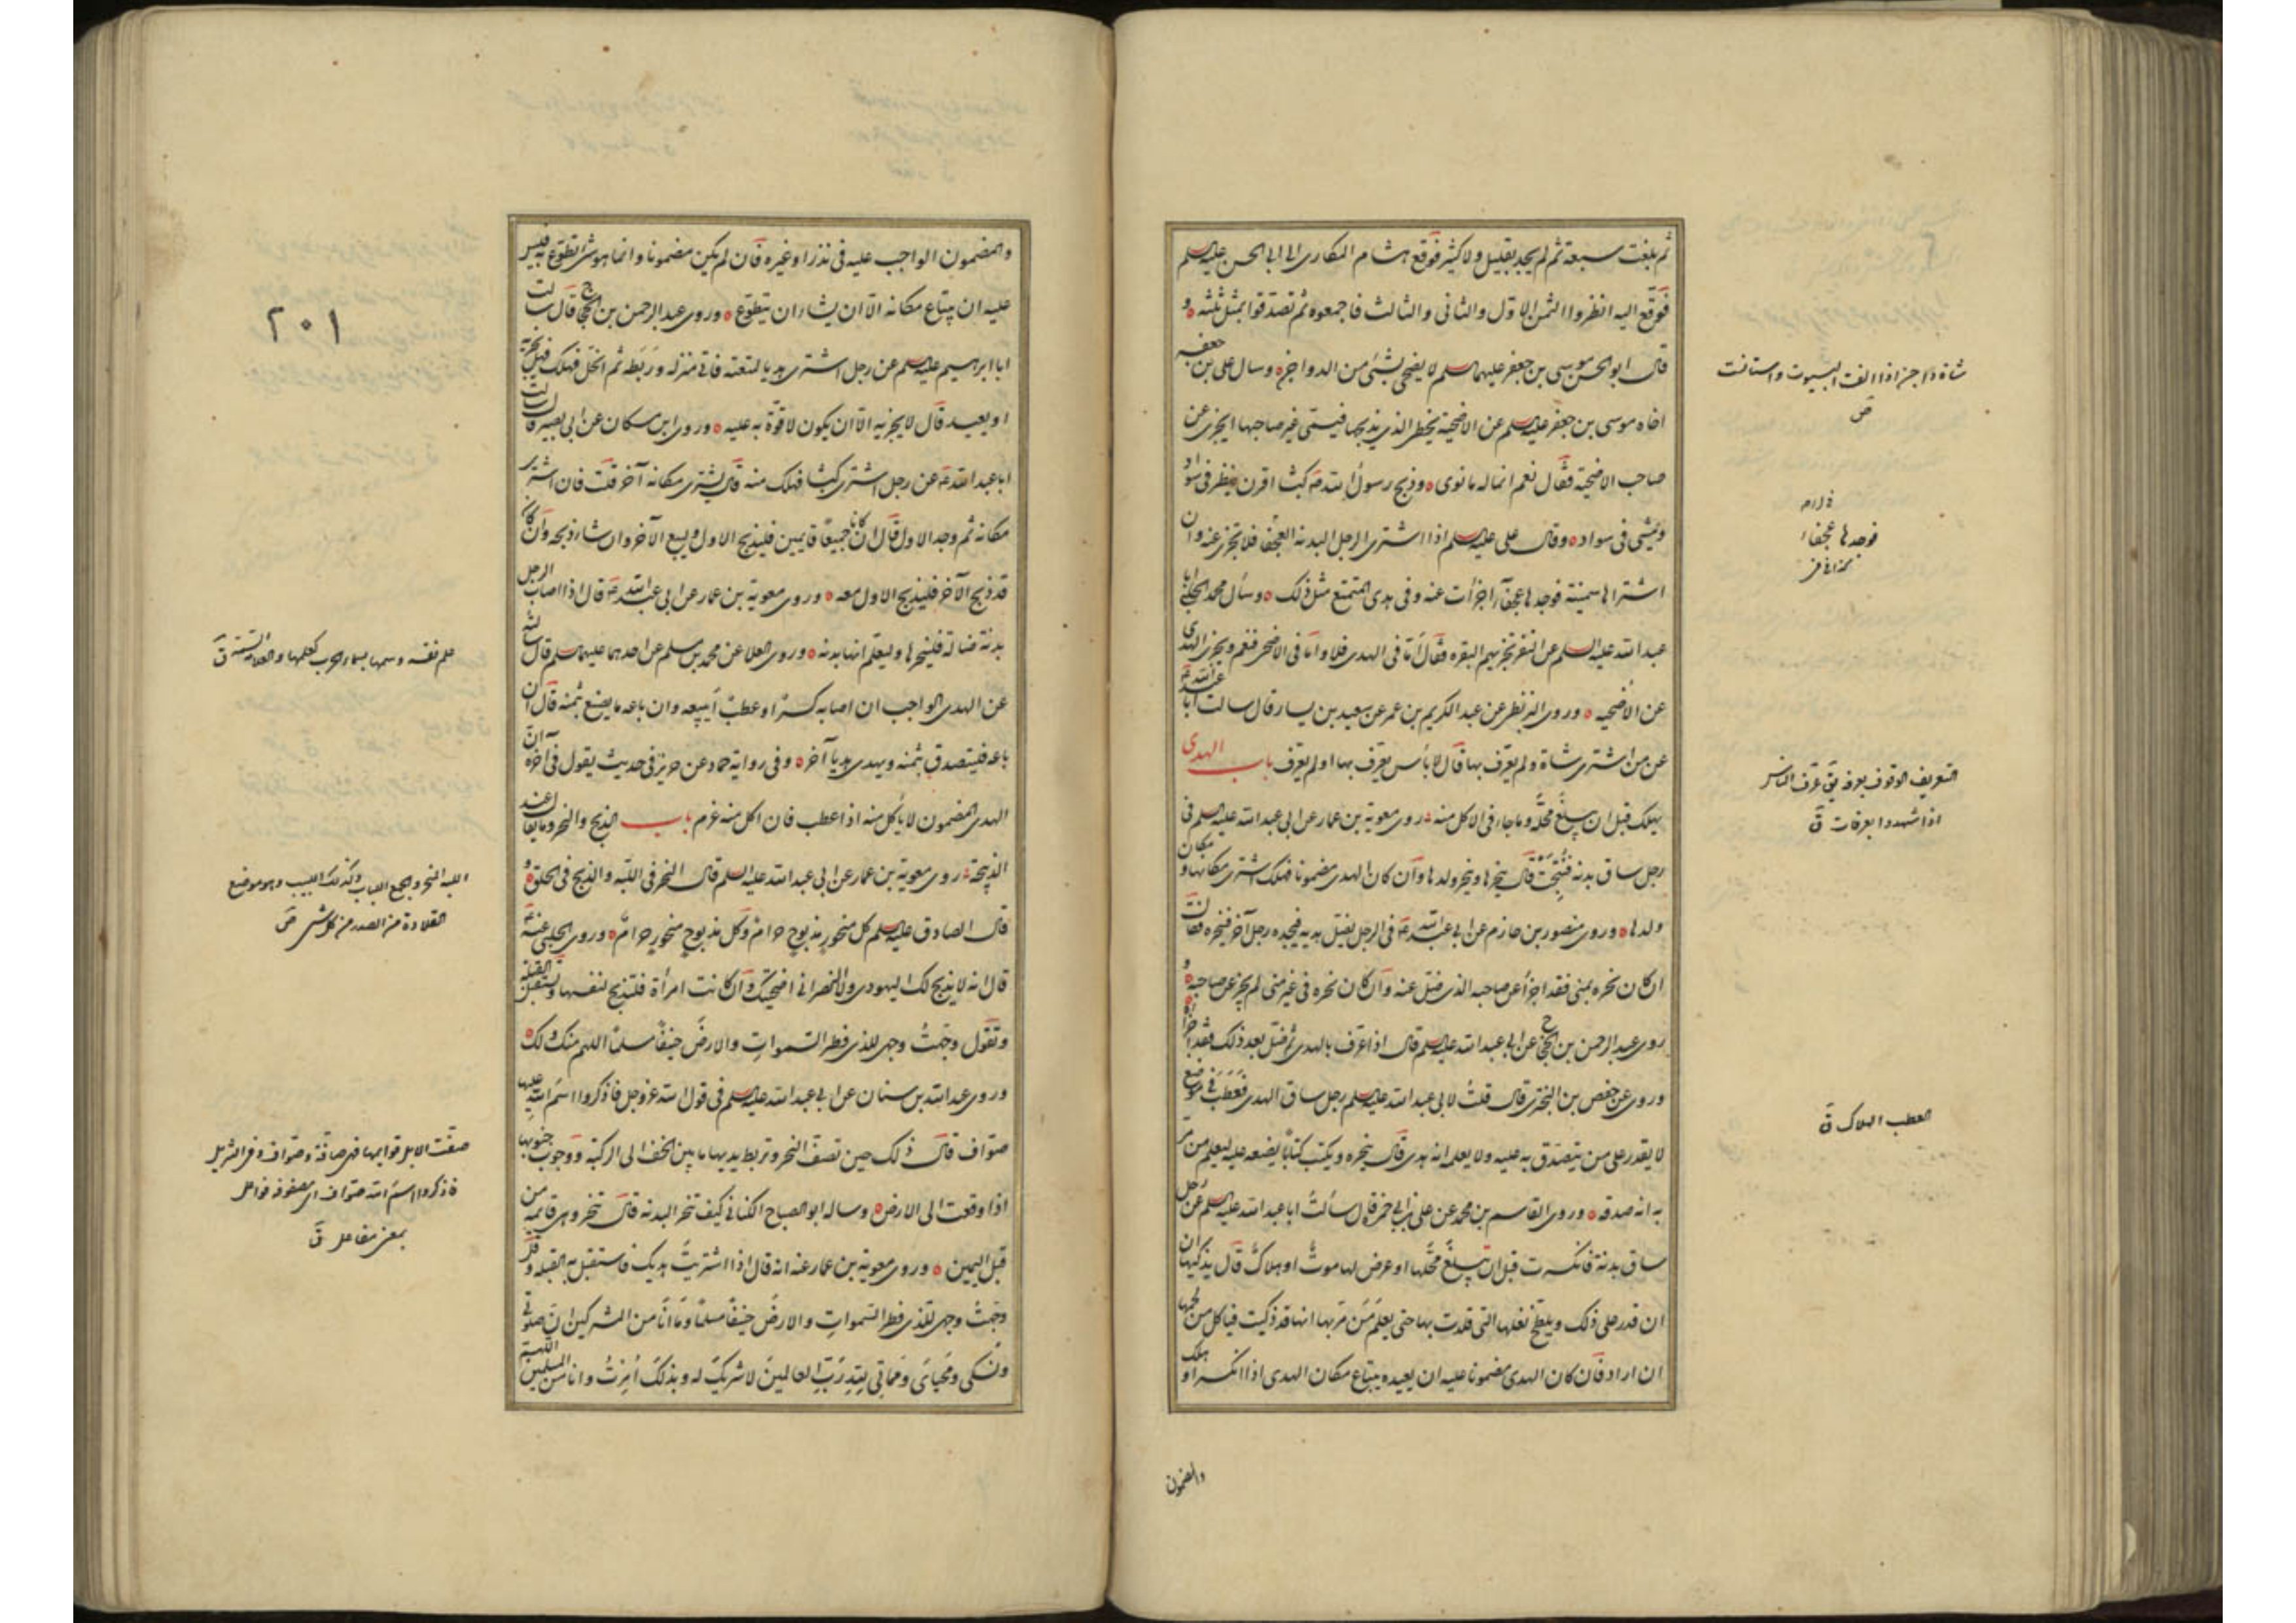 ثم بلغت سبعة ثم لم يجد بقليل ولا كثير فوقع هشام المكارى الى ابى الحسن عليه السلم
فوقع اليه انظروا الثمن الاول والثانى والثالث فاجمعوه ثم تصدقوا بمثل ثلثه و
قال ابو الحسن موسى بن جعفر عليهما السلم لا يضحى بشئ من الدواجن وسال على بن جعفر
اخاه موسى بن جعفر عليه السلم عن الاضحية يخطئ الذى يذبحها فيسمى غير صاحبها ايجزى عن
صاحب الاضحية فقال نعم انما له ما نوى وذبح رسول الله ص كبشا اقرن ينظر فى سواد
ويمشى فى سواد وقال على عليه السلم اذا اشترى الرجل البدنة العجفاء فلا تجزى عنه وان
اشتراها سمينة فوجدها عجفاء اجزأت عنه وفى هدى المتمتع مثل ذلك وسأل محمد الحلبى ابا
عبد الله عليه السلم عن النفر تجزيهم البقرة فقال اما فى الهدى فلا واما فى الاضحى فنعم ويجزى الهدى
عن الاضحية وروى البزنطى عن عبد الكريم بن عمر عن سعيد بن يسار قال سالت ابا عبد الله ع
عن من اشترى شاة ولم يعرف بها قال لا بأس يعرف بها او لم يعرف باب الهدى
يهلك قبل ان يبلغ محله وما جاء فى الاكل منه روى معوية بن عمار عن ابى عبد الله عليه السلم فى
رجل ساق بدنة فنتجت قال ينحرها وينحر ولدها وان كان الهدى مضمونا فهلك اشترى مكانها ومكان
ولدها وروى منصور بن حازم عن ابى عبد الله ع فى الرجل يضل هديه فيجده رجل آخر فينحره فقال
ان كان نحره بمنى فقد اجزأ عن صاحبه الذى ضل عنه وان كان نحره فى غير منى لم يجز عن صاحبه و
روى عبد الرحمن بن الحجاج عن ابى عبد الله عليه السلم قال اذا عرف بالهدى ثم ضل بعد ذلك فقد اجزأ
وروى عن حفص بن البخترى قال قلت لابى عبد الله عليه السلم رجل ساق الهدى فعطب فى موضع
لا يقدر على من يتصدق به عليه ولا يعلم انه هدى قال ينحره ويكتب كتابا يضعه عليه ليعلم من مر
به انه صدقه وروى القاسم بن محمد عن على بن ابى حمزة قال سألت ابا عبد الله عليه السلم عن رجل
ساق بدنة فانكسرت قبل ان تبلغ محلها او عرض لها موت او هلاك قال يذكيها ان
ان قدر على ذلك ويلطخ نعلها التى قلدت بها حتى يعلم من مر بها انها قد ذكيت فياكل من لحمها
ان اراد فان كان الهدى مضمونا عليه ان يعيده يبتاع مكان الهدى اذا انكسر او هلك
والمضمون
شاة داجن اذا الفت البيوت واستانست
ص
فوجدها عجفاء
التعريف الوقوف بعرفة يق عرف الناس
اذا شهدوا بعرفات ق
العطب الهلاك ق
والمضمون الواجب عليه فى نذر او غيره فان لم يكن مضمونا وانما هو شئ تطوع به فليس
عليه ان يبتاع مكانه الا ان يشاء ان يتطوع وروى عبد الرحمن بن الحجاج قال سالت
ابا ابرهيم عليه السلم عن رجل اشترى هديا لمتعته فاتى منزله وربطه ثم انحل فهلك فهل يجزيه
او يعيد قال لا يجزيه الا ان يكون لا قوة به عليه وروى ابن مسكان عن ابى بصير قال سالت
ابا عبد الله ع عن رجل اشترى كبشا فهلك منه قال يشترى مكانه آخر قلت فان اشترى
مكانه ثم وجد الاول قال ان كانا جميعا قايمين فليذبح الاول ويبيع الآخر وان شاء ذبحه وان كان
قد ذبح الآخر فليذبح الاول معه وروى معوية بن عمار عن ابى عبد الله ع قال اذا اصاب الرجل
بدنة ضالة فلينحرها وليعلم انها بدنه وروى العلا عن محمد بن مسلم عن احدهما عليهما السلم قال سالته
عن الهدى الواجب ان اصابه كسر او عطب أيبيعه وان باعه ما يصنع بثمنه قال ان
باعه فليتصدق بثمنه ويهدى هديا آخر وفى رواية حماد عن حريز فى حديث يقول فى آخره ان
الهدى المضمون لا يأكل منه اذا عطب فان اكل منه غرم باب الذبح والنحر وما يقال عند
الذبيحة روى معوية بن عمار عن ابى عبد الله عليه السلم قال النحر فى اللبه والذبح فى الحلق و
قال الصادق عليه السلم كل منحور مذبوح حرام وكل مذبوح منحور حرام وروى الحلبى عنه ع
قال انه لا يذبح لك اليهودى ولا النصرانى اضحيتك وان كانت امرأة فلتذبح لنفسها وتستقبل القبلة
وتقول وجهت وجهى للذى فطر السموات والارض حنيفا مسلما اللهم منك ولك
وروى عبد الله بن سنان عن ابى عبد الله عليه السلم فى قول الله عز وجل فاذكروا اسم الله عليها
صواف قال ذلك حين تصف النحر وتربط يديها ما بين الخف الى الركبة ووجوب جنوبها
اذا وقعت الى الارض وساله ابو الصباح الكنانى كيف تنحر البدنة قال تنحر وهى قائمة من
قبل اليمين وروى معوية بن عمار عنه انه قال اذا اشتريت هديك فاستقبل به القبلة وقل
وجهت وجهى للذى فطر السموات والارض حنيفا مسلما وما انا من المشركين ان صلوتى
ونسكى ومحياى ومماتى لله رب العالمين لا شريك له وبذلك امرت وانا من المسلمين اللهم
٢٠١
علم نفسه وسمها بسماء الحرب كعلمها والعلامة السمة ق
اللبه المنحر والجمع اللبات وكذلك اللبب وهو موضع
القلادة من الصدر من كل شئ ص
صفت الابل قوايمها فهى صافة وصواف وفى التنزيل
فاذكروا اسم الله صواف اى مصفوفة فواعل
بمعنى مفاعل ق